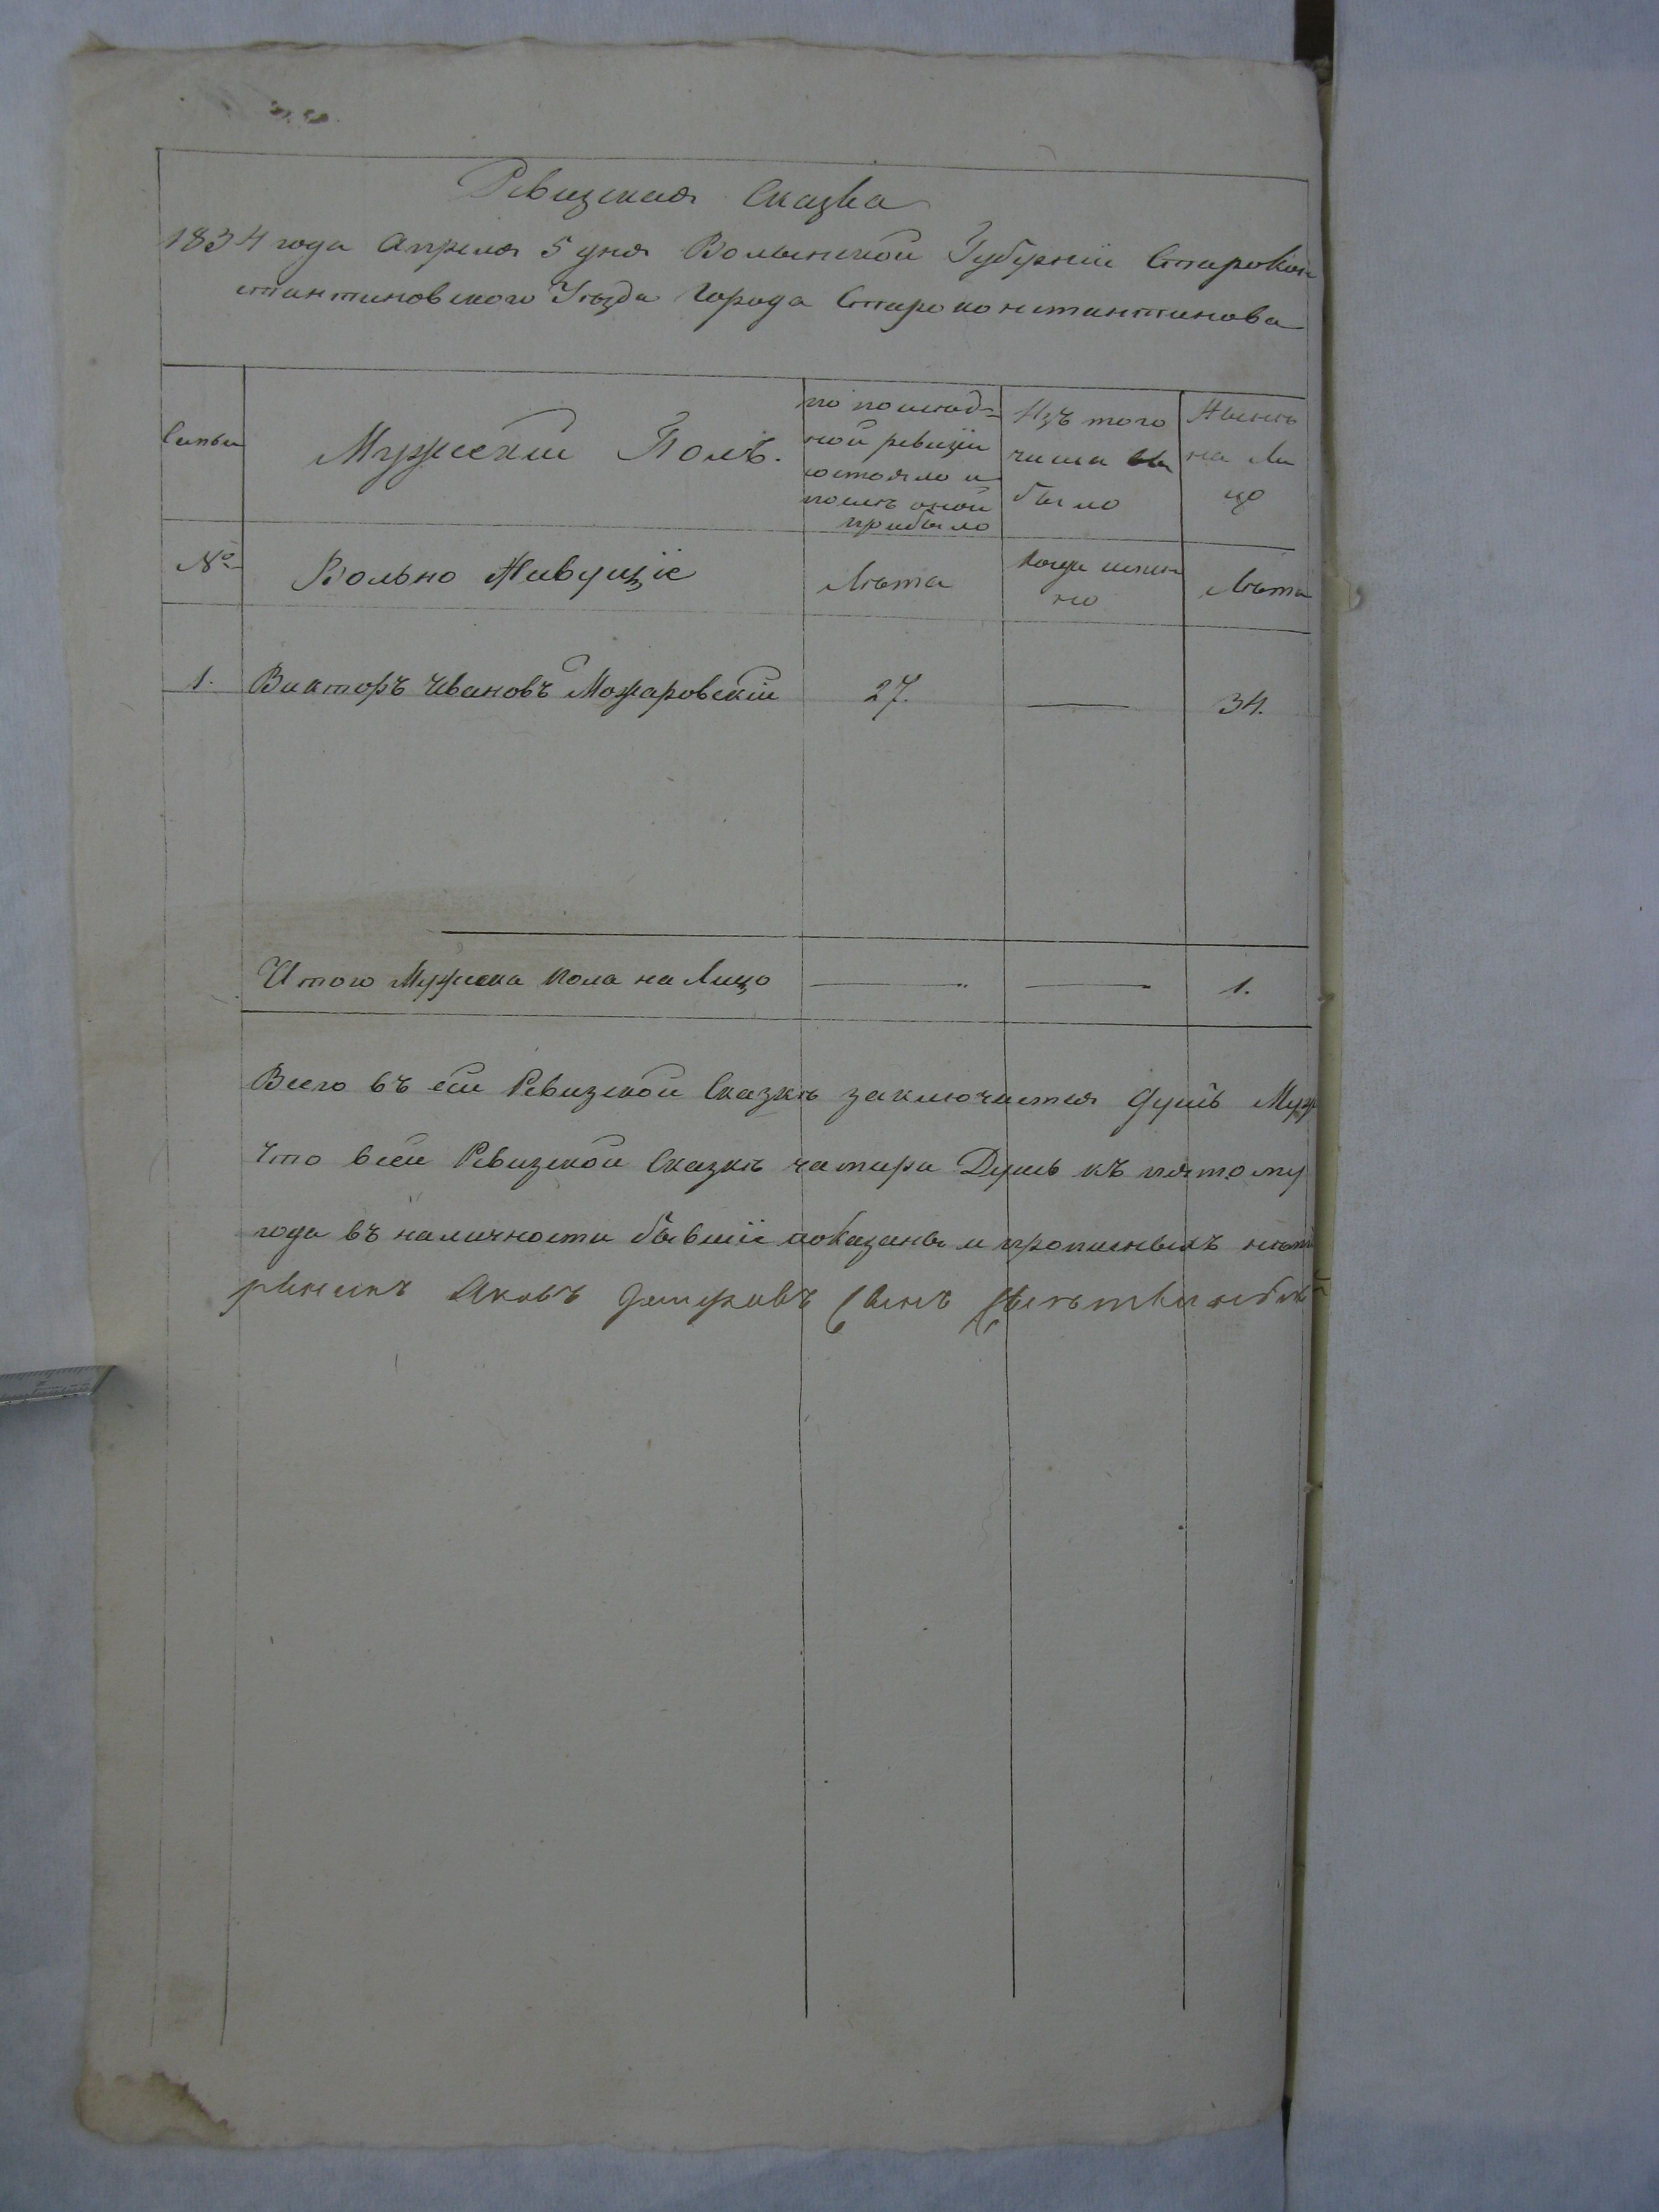 Ревизская Сказка
1834 года Апреля 5 дня Волынской Губерніи Старокон
стантиновского Уѣзда Города Староконстантинова
Семьи
Мужескій Полъ.
по послѣд-
ной ревизіи
состояло и
послѣ оной
прибыло
Изъ того
числа вы
было
Нынѣ
на Ли
цо
№
Вольно Живущіе
Лѣта
Когда имян
но
Лѣта
1. Викторъ Ивановъ Можаровскій 27. — 34.
Итого Мужеска пола на Лицо — — 1.
Всего въ сей Ревизской Сказкѣ заключается душъ Муж
Что всей Ревизской Сказкѣ чатири Душь къ пятому
года въ наличности бывшіе показаны и прописныхъ нѣт
Яковъ Сынъ